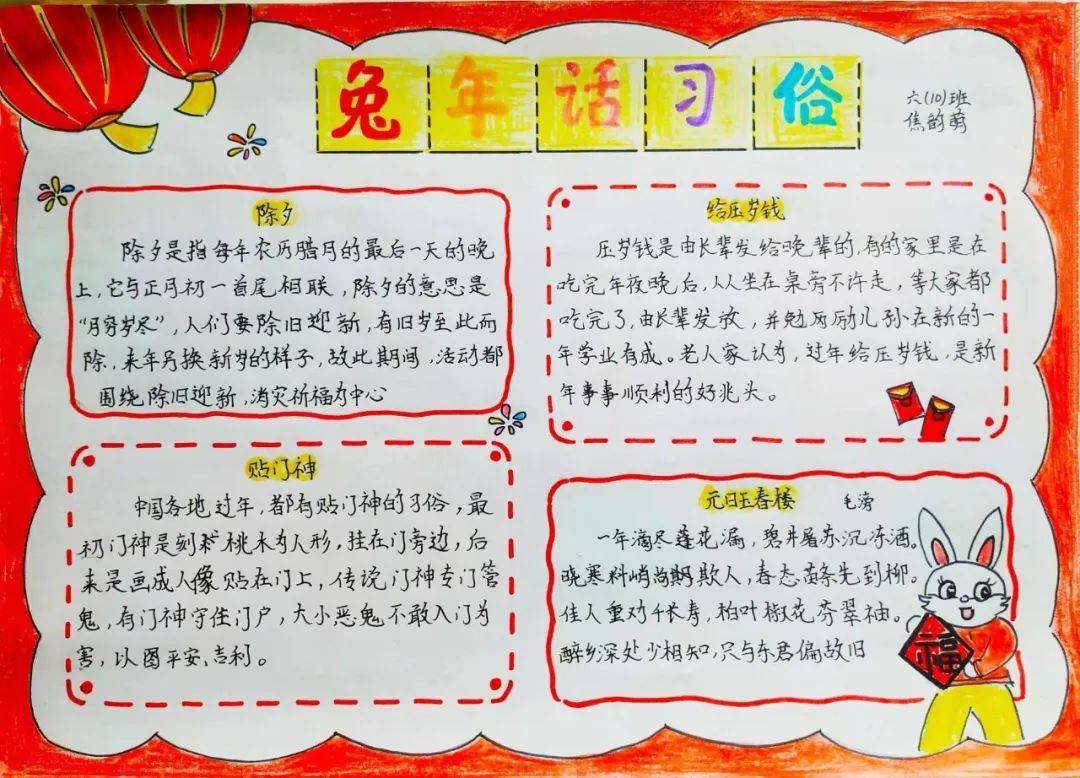 兔年话习俗
六(10)班
焦韵萌
除夕
除夕是指每年农历腊月的最后一天的晚
上,它与正月初一首尾相联,除夕的意思是
“月穷岁尽”,人们要除旧迎新,有旧岁至此而
除,来年另换新岁的样子,故此期间,活动都
围绕除旧迎新,消灾祈福为中心
给压岁钱
压岁钱是由长辈发给晚辈的,有的家里是在
吃完年夜晚后,人人坐在桌旁不许走,等大家都
吃完了,由长辈发放,并勉励儿孙在新的一
年学业有成。老人家认为,过年给压岁钱,是新
年事事顺利的好兆头。
贴门神
中国各地过年,都有贴门神的习俗,最
初门神是刻桃木为人形,挂在门旁边,后
来是画成人像贴在门上,传说门神专门管
鬼,有门神守住门户,大小恶鬼不敢入门为
害,以图平安、吉利。
元日玉春楼 毛滂
一年滴尽莲花漏,碧井屠苏沉冻酒。
晓寒料峭尚欺人,春态苗条先到柳。
佳人重劝千长寿,柏叶椒花芬翠袖。
醉乡深处少相知,只与东君偏故旧
福